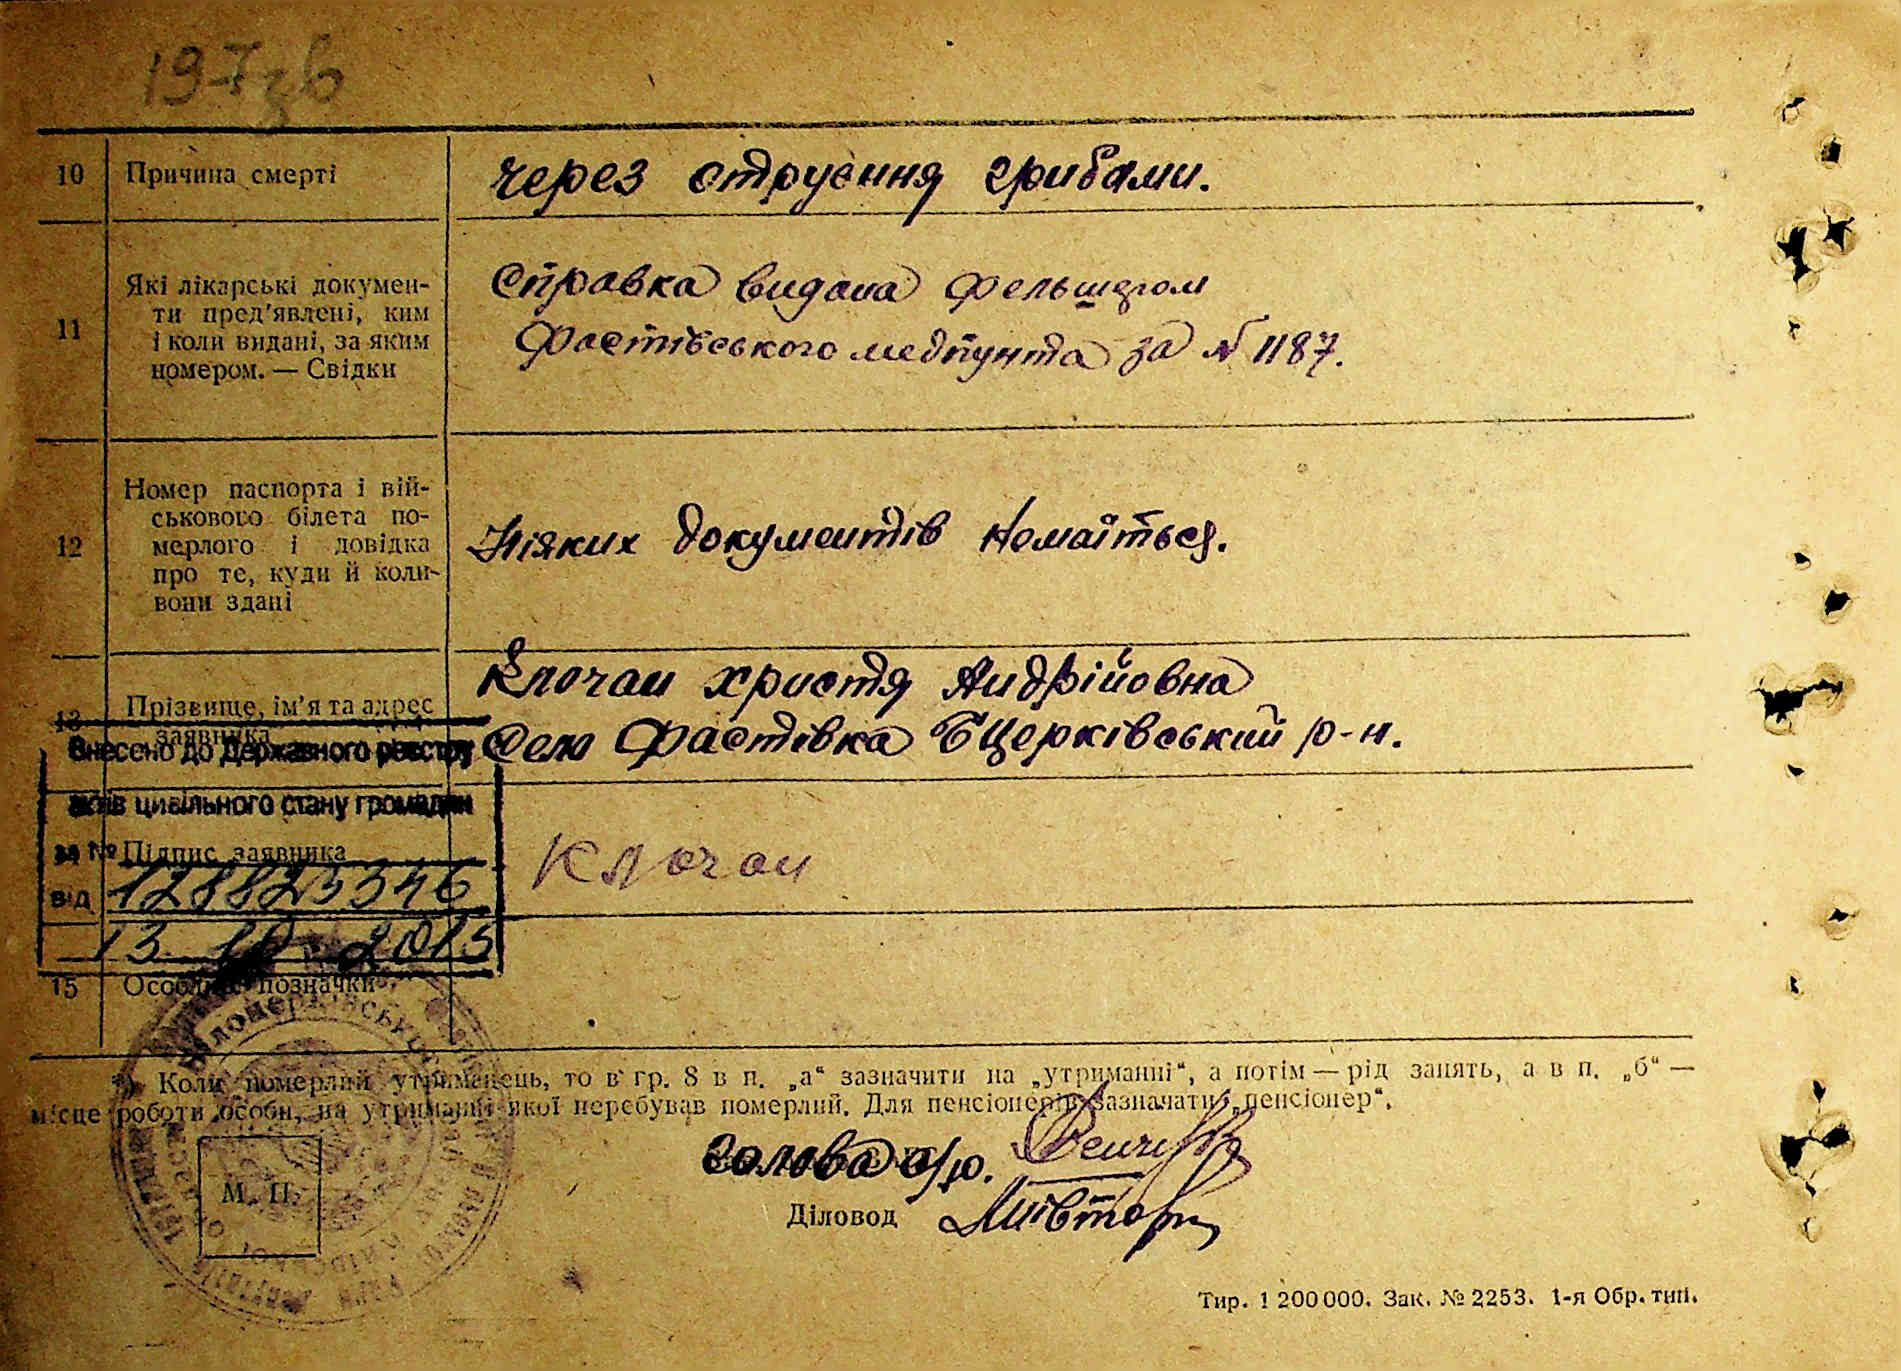 197зв
10 Причина смерті через отруєння грибами.
11 Які лікарські докумен-
ти пред'явлені, ким
і коли видані, за яким
номером. — Свідки
Справка видана фельшером
Фастівського медпункта за № 1187.
12 Номер паспорта і вій-
ськового білета по-
мерлого і довідка
про те, куди й коли
вони здані
Ніяких документів немаїться.
13 Прізвище, ім'я та адрес
заявника
Клочан Христя Андрійовна
Село Фастівка БЦерківський р-н.
Внесено до Державного реєстру
актів цивільного стану громадян
за №
Підпис заявника
Клочан
128823346
від
13. 10. 2015
15 Особливі позначки
*) Коли померлий утриманець, то в гр. 8 в п. „а“ зазначити на „утриманні“, а потім — рід занять, а в п. „б“ —
місце роботи особи, на утриманні якої перебував померлий. Для пенсіонерів зазначати „пенсіонер“.
Голова с/р.
Діловод
М. П.
Тир. 1 200 000. Зак. № 2253. 1-я Обр. тип.